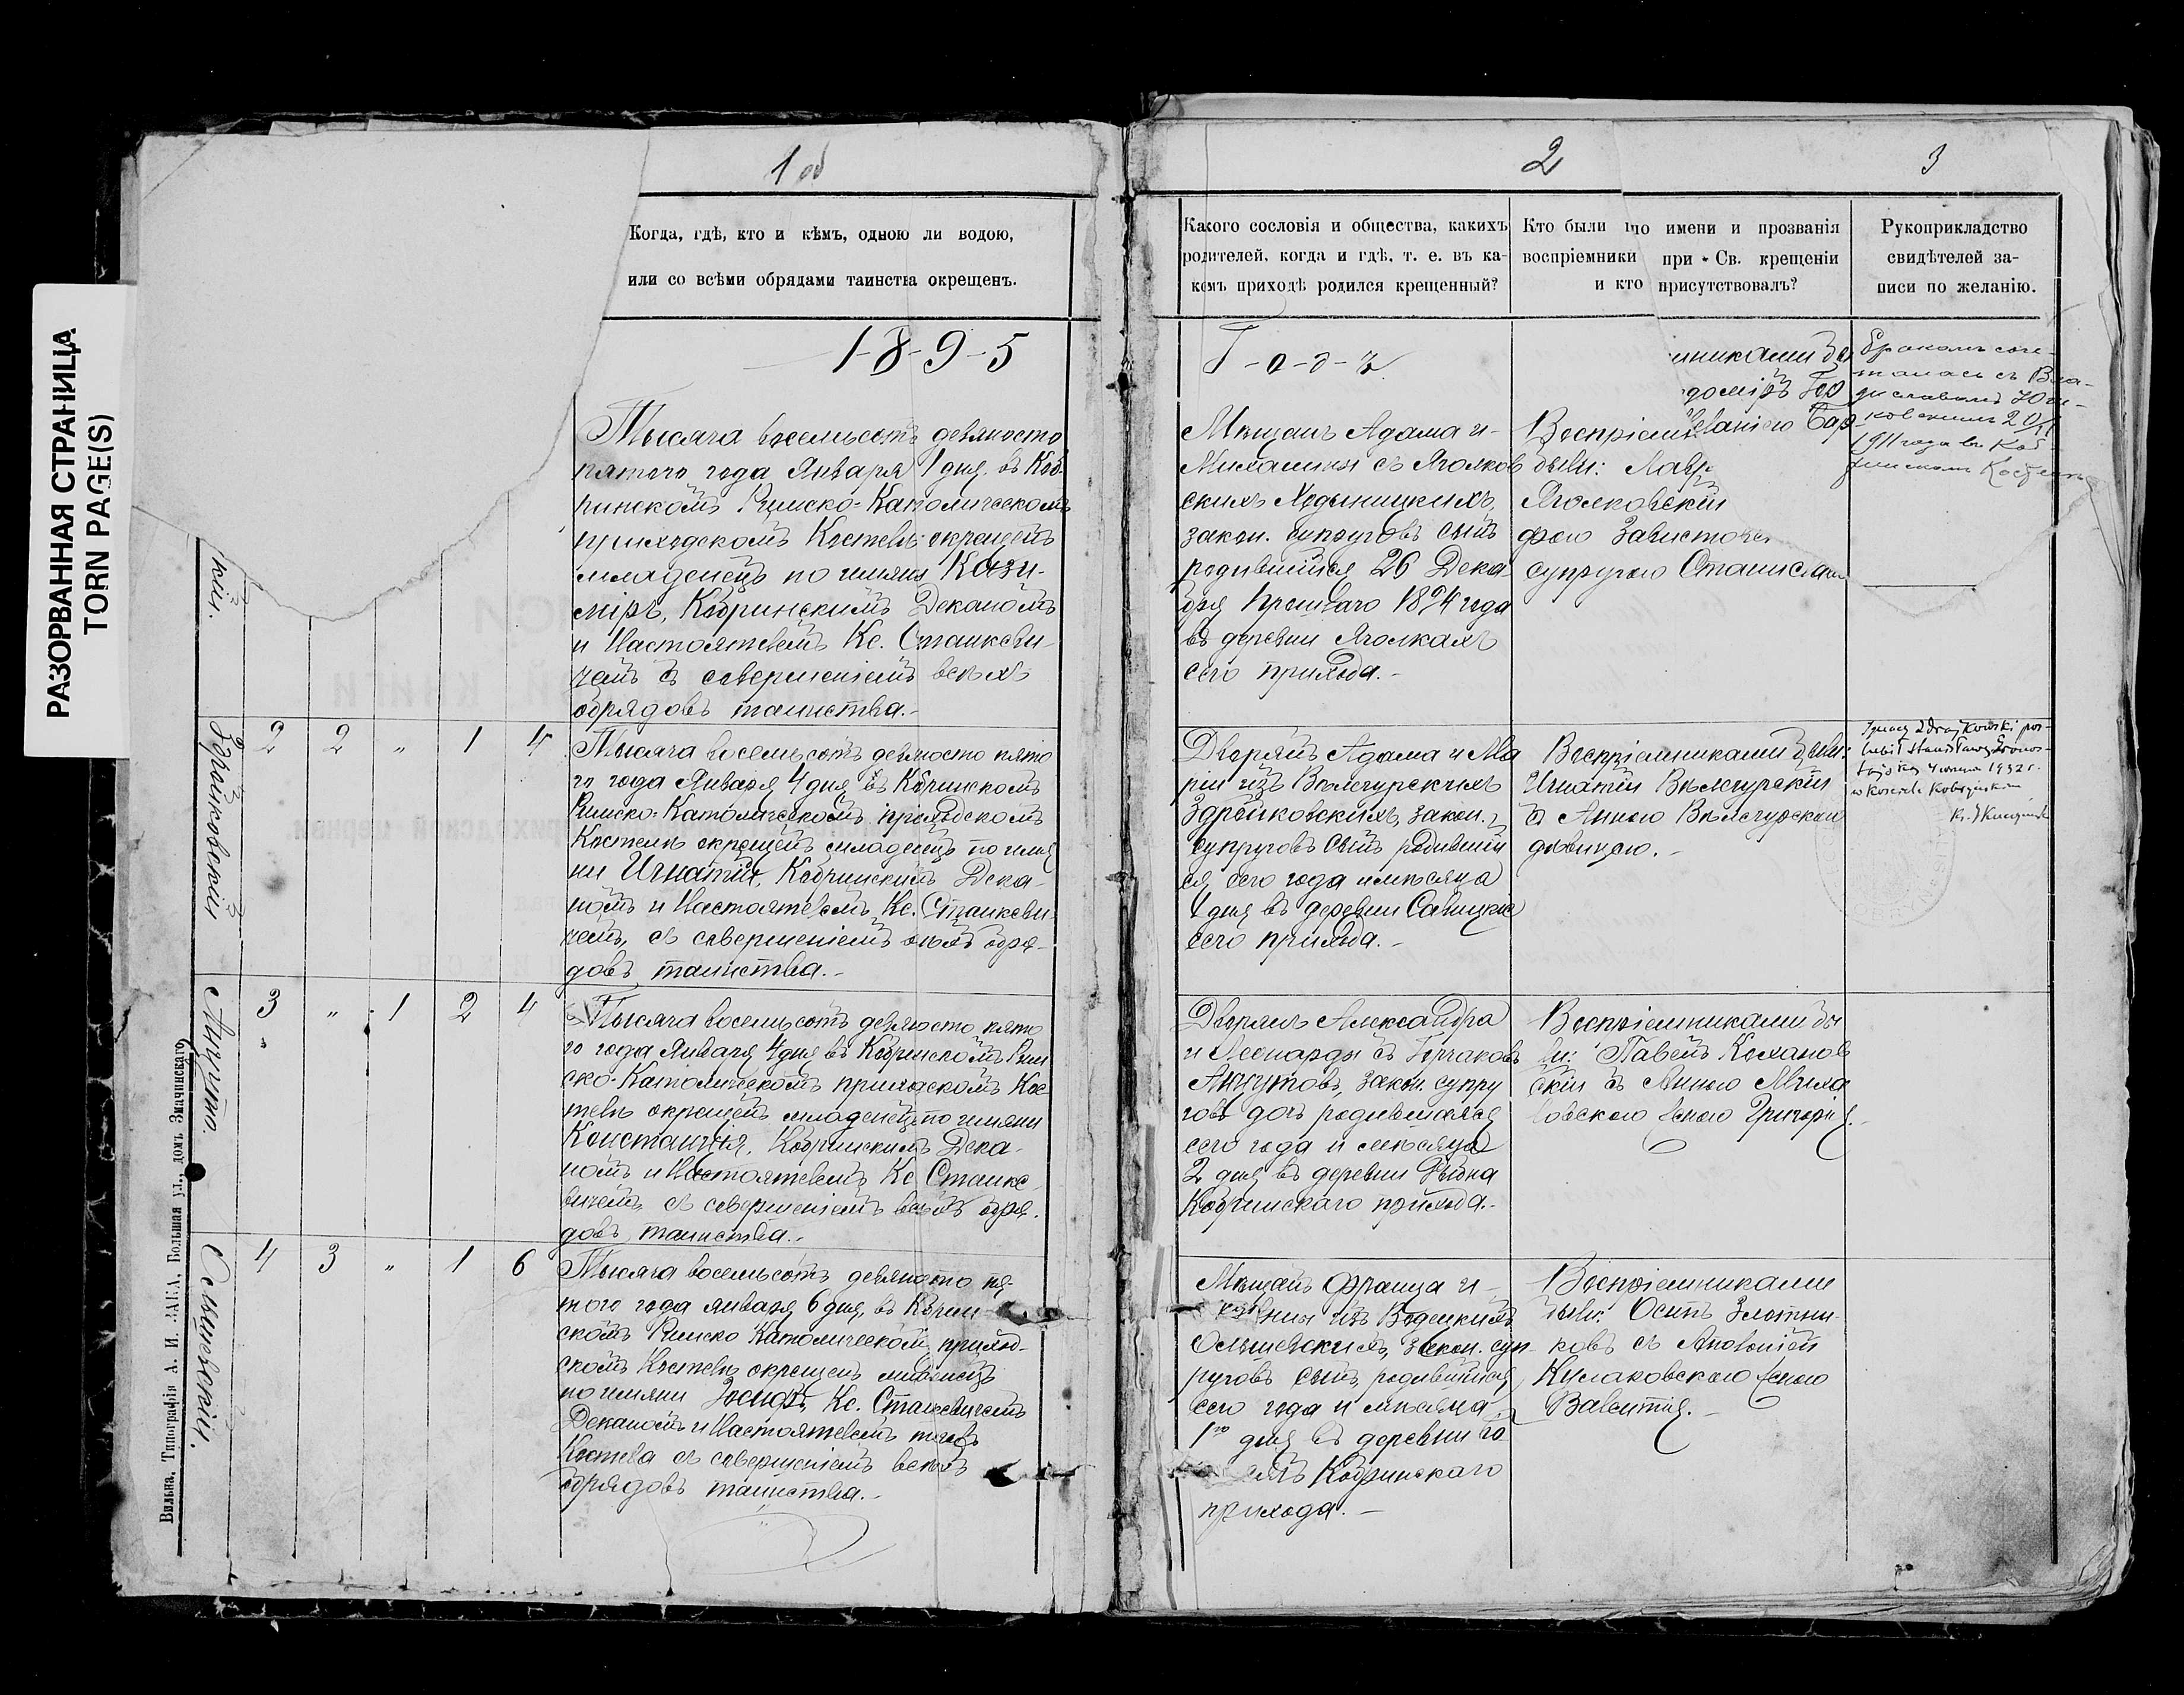 РАЗОРВАННАЯ СТРАНИЦА
TORN PAGE(S)
1 об
Когда, гдѣ, кто и кѣмъ, одною ли водою,
или со всѣми обрядами таинства окрещенъ.
1-8-9-5
кій.
Тысяча восемьсотъ девяносто
пятого года Января 1 дня въ Коб-
ринскомъ Римско-Католическомъ
приходскомъ Костелѣ окрещенъ
младенецъ по имяни Кази-
міръ, Кобринскимъ Деканомъ
и Настоятелемъ Кс. Станкеви-
чемъ съ совершеніемъ всѣхъ
обрядовъ таинства.-
Здрайковскій
2 2 „ 1 4
Тысяча восемьсотъ девяносто пято
го года Января 4 дня въ Кобринскомъ
Римско-Католическомъ приходскомъ
Костелѣ окрещенъ младенецъ по имя
ни Игнатій, Кобринскимъ Дека-
номъ и Настоятелемъ Кс. Станкеви-
чемъ, съ совершеніемъ всѣхъ обря-
довъ таинства.-
Анцуто.
3 „ 1 2 4
Тысяча восемьсотъ девяносто пято
го года Января 4 дня въ Кобринскомъ Рим
ско-Католическомъ приходскомъ Кос
телѣ окрещенъ младенецъ по имяни
Констанція, Кобринскимъ Дека-
номъ и Настоятелемъ Кс Станке
вичемъ, съ совершеніемъ всѣхъ обря-
довъ таинства.-
Ольшевскій.
4 3 „ 1 6
Тысяча восемьсотъ девяносто пя-
того года января 6 дня, въ Кобрин
скомъ Римско Католическомъ приход-
скомъ Костелѣ окрещенъ младенецъ
по имяни Іосифъ, Кс. Станкевичемъ
Деканомъ и Настоятелемъ тогожъ
Костела съ совершеніемъ всѣхъ
обрядовъ таинства.-
Вильна, Типографія А. И. ЗАКА, Большая ул., домъ Значинскаго
2
3
Какого сословія и общества, какихъ
родителей, когда и гдѣ, т. е. въ ка-
комъ приходѣ родился крещенный?
Кто были по имени и прозванія
воспріемники при Св. крещеніи
и кто присутствовалъ?
Рукоприкладство
свидѣтелей за-
писи по желанію.
Г-о-д-ъ
Мѣщанъ Адама и
Михалины съ Яголков
скихъ Ходыницкихъ,
закон. супруговъ сынъ
родившійся 26 Дека-
бря прошлаго 1894 года
въ деревни Яголкахъ
сего прихода.-
Воспріем
были:
Яголковскій
супругою Станислав
Бракомъ соче-
талась съ Вла-
диславомъ
1911 года въ Коб-
ринскомъ Костелѣ
Дворянъ Адама и Ма
ріи изъ Вѣлегурскихъ
Здрайковскихъ, закон.
супруговъ сынъ родившій
ся сего года и мѣсяца
1 дня въ деревни Савицкіе
сего прихода.-
Воспріемниками были:
Игнатій Вѣлегурскій
съ Анною Вѣлегурскою
дѣвицею.-
Ignacy Zdrajkowski poś-
lubił Stanisławę
1932 r.
w Kościele Kobryńskim
Дворянъ Александра
и Леонарды съ Горчаковъ
Анцутовъ, закон. супру
говъ дочь родившаяся
сего года и мѣсяца
2 дня въ деревни
Кобринскаго прихода.-
Воспріемниками бы
ли: Павелъ Кохановс
кій съ Анною Миха
ловскою женою Григорія.-
Мѣщанъ Франца и
изъ
Ольшевскихъ, закон. суп-
руговъ сынъ, родившійся
сего года и мѣсяца
1го дня въ деревни
Кобринскаго
прихода.-
Воспріемниками
были: Осипъ Злотни-
ковъ съ Аполоніей
Кулаковскою женою
Валентія.-